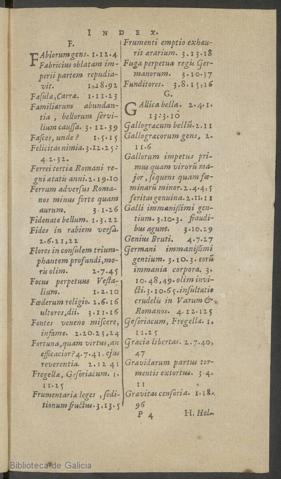 INDEX.
F.
FAbiorum gens. 1.12.4
Fabricius oblatam im-
perii partem repudia-
vit. 1.18.92
Fæsulæ, Carræ. 1.11.23
Familiarum abundan-
tia, bellorum servi-
lium caussa. 3.12.39
Fasces, unde? 1.5.15
Felicitas nimia. 3.12.25:
4.2.32.
Ferrei tertia Romani re-
gni ætatis anni. 2.19.10
Ferrum adversus Roma-
nos minus forte quam
aurum. 3.1.26
Fidenate bellum. 1.3.22
Fides in rabiem versa.
2.6.11,22
Flores in consulem trium-
phantem profundi, mo-
ris olim. 2.7.45
Focus perpetuus Vesta-
lium. 1.2.10
Fœderum religio. 2.6.16
ultores, dii. 3.11.16
Fontes veneno miscere,
infame. 2.20.25,24
Fortuna, quam virtus, an
efficacior? 4.7.41. ejus
reverentia. 2.12.41
Fregellæ, Gesoriacum. 1.
11.25
Frumentariæ leges, sedi-
tionum fructus. 3.13.5
Frumenti emptio exhau-
rit ærarium. 3.13.18
Fuga perpetua regis Ger-
manorum. 3.10.17
Funditores. 3.8.15,16
G.
GAllica bella. 2.4.1.
13:3.10
Gallogræcum bellũ. 2.11
Gallogræcorum gens, 2.
11.6
Gallorum impetus pri-
mus quam virorū ma-
jor, sequens quam fœ-
minarū minor. 2.4.4,5
feritas genuina. 2.11.18
Galli immanissimi gen-
tium. 3.10.3. fraudi-
bus agunt. 3.10.29
Genius Bruti. 4.7.27
Germani immanissimi
gentium. 3.10.3. eorū
immania corpora. 3.
10.48,49. olim invi-
cti. 3.10.65. insultatio
crudelis in Varum &
Romanos. 4.12.125
Gesoriacum, Fregella. 1.
11.25
Gracia libertas. 2.7.40,
47
Gravidarum partus tor-
mentis extortus. 3.4.
11
Gravitas censoria. 1.18.
96
P 4 H. Hel-
Biblioteca de Galicia